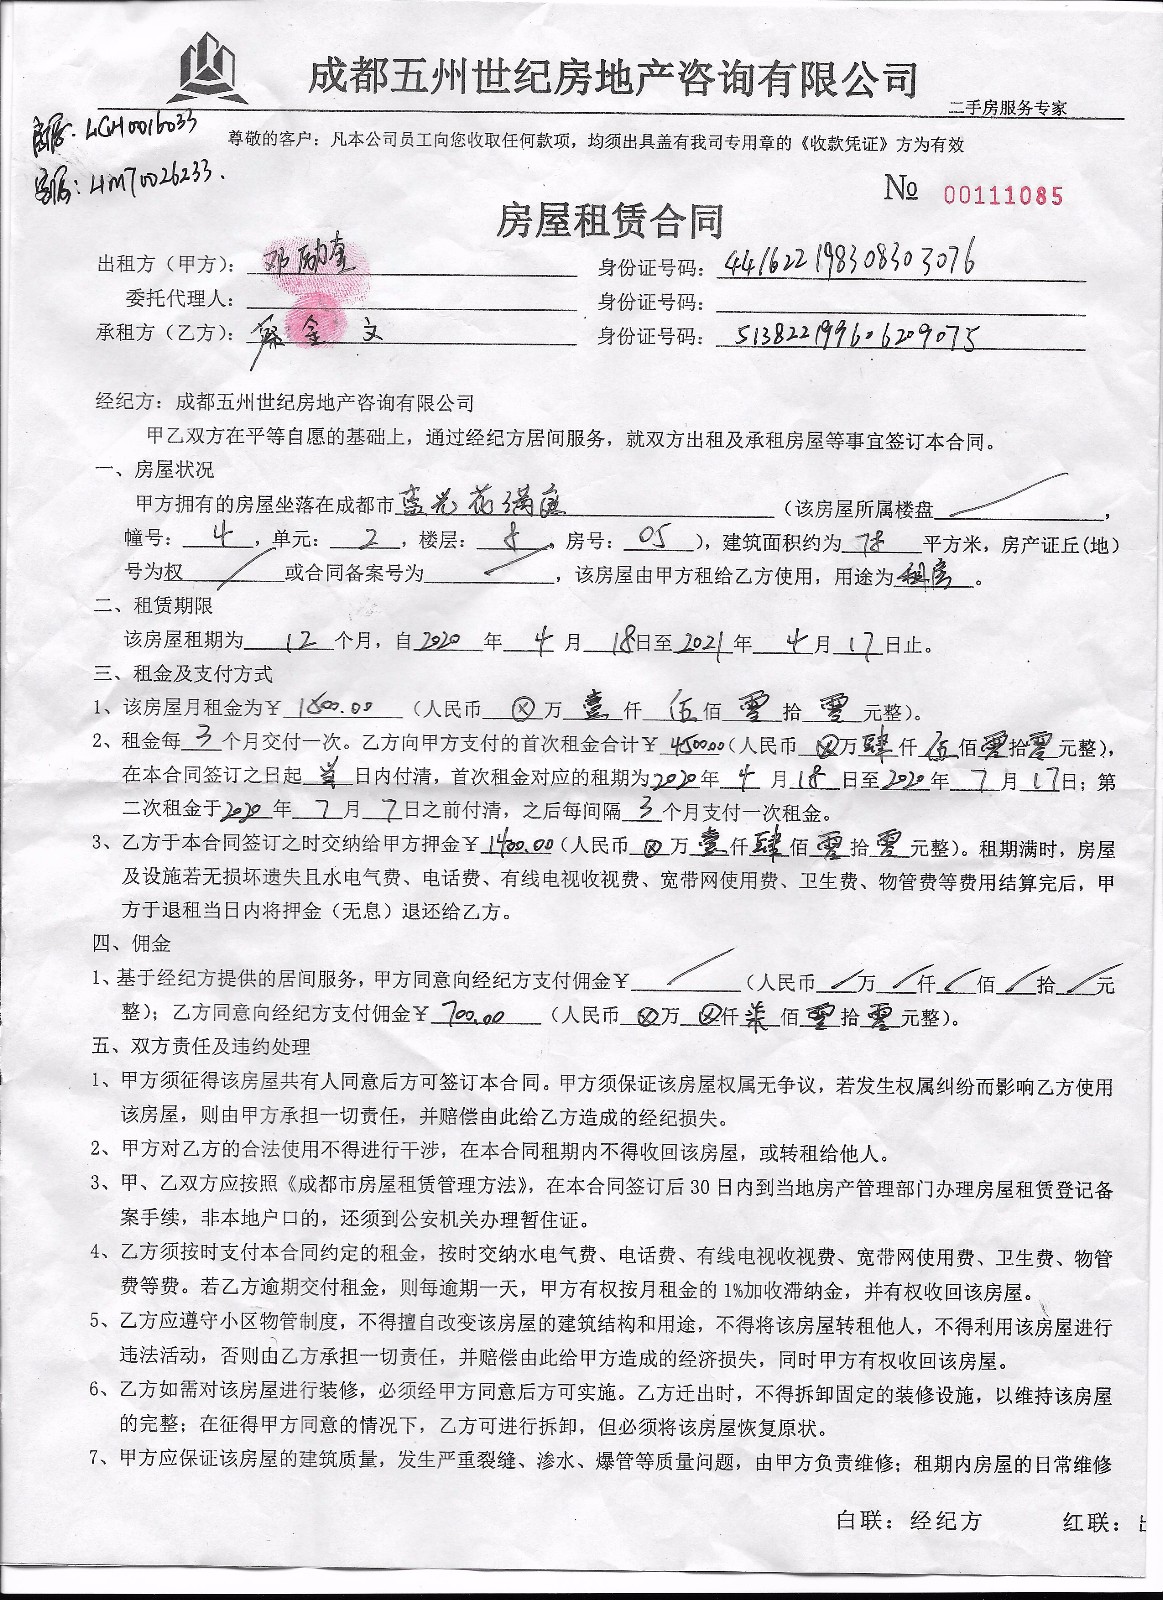 成都五州世纪房地产咨询有限公司
二手房服务专家
房源: LCH0016033
尊敬的客户：凡本公司员工向您收取任何款项，均须出具盖有我司专用章的《收款凭证》方为有效
客源: 4M70026233.
№ 00111085
房屋租赁合同
出租方（甲方）： 邓励奎 身份证号码： 441622198308303076
委托代理人： 身份证号码：
承租方（乙方）： 蔡金文 身份证号码： 513822199606209075
经纪方：成都五州世纪房地产咨询有限公司
甲乙双方在平等自愿的基础上，通过经纪方居间服务，就双方出租及承租房屋等事宜签订本合同。
一、房屋状况
甲方拥有的房屋坐落在成都市 蓝光花满庭 （该房屋所属楼盘 ，
幢号： 4 ，单元： 2 ，楼层： 8 ，房号： 05 ），建筑面积约为 78 平方米，房产证丘(地)
号为权 或合同备案号为 ，该房屋由甲方租给乙方使用，用途为 租房 。
二、租赁期限
该房屋租期为 12 个月，自 2020 年 4 月 18 日至 2021 年 4 月 17 日止。
三、租金及支付方式
1、该房屋月租金为￥ 1500.00 （人民币 ⊗ 万 壹 仟 伍 佰 零 拾 零 元整）。
2、租金每 3 个月交付一次。乙方向甲方支付的首次租金合计￥ 4500.00（人民币 ⊗ 万 肆 仟 伍 佰 零 拾 零 元整），
在本合同签订之日起 当 日内付清，首次租金对应的租期为 2020 年 4 月 18 日至 2020 年 7 月 17 日；第
二次租金于 2020 年 7 月 7 日之前付清，之后每间隔 3 个月支付一次租金。
3、乙方于本合同签订之时交纳给甲方押金￥ 1400.00（人民币 ⊗ 万 壹 仟 肆 佰 零 拾 零 元整）。租期满时，房屋
及设施若无损坏遗失且水电气费、电话费、有线电视收视费、宽带网使用费、卫生费、物管费等费用结算完后，甲
方于退租当日内将押金（无息）退还给乙方。
四、佣金
1、基于经纪方提供的居间服务，甲方同意向经纪方支付佣金￥ （人民币 / 万 / 仟 / 佰 / 拾 / 元
整）；乙方同意向经纪方支付佣金￥ 700.00 （人民币 ⊗ 万 ⊗ 仟 柒 佰 零 拾 零 元整）。
五、双方责任及违约处理
1、甲方须征得该房屋共有人同意后方可签订本合同。甲方须保证该房屋权属无争议，若发生权属纠纷而影响乙方使用
该房屋，则由甲方承担一切责任，并赔偿由此给乙方造成的经纪损失。
2、甲方对乙方的合法使用不得进行干涉，在本合同租期内不得收回该房屋，或转租给他人。
3、甲、乙双方应按照《成都市房屋租赁管理方法》，在本合同签订后 30 日内到当地房产管理部门办理房屋租赁登记备
案手续，非本地户口的，还须到公安机关办理暂住证。
4、乙方须按时支付本合同约定的租金，按时交纳水电气费、电话费、有线电视收视费、宽带网使用费、卫生费、物管
费等费。若乙方逾期交付租金，则每逾期一天，甲方有权按月租金的 1%加收滞纳金，并有权收回该房屋。
5、乙方应遵守小区物管制度，不得擅自改变该房屋的建筑结构和用途，不得将该房屋转租他人，不得利用该房屋进行
违法活动，否则由乙方承担一切责任，并赔偿由此给甲方造成的经济损失，同时甲方有权收回该房屋。
6、乙方如需对该房屋进行装修，必须经甲方同意后方可实施。乙方迁出时，不得拆卸固定的装修设施，以维持该房屋
的完整；在征得甲方同意的情况下，乙方可进行拆卸，但必须将该房屋恢复原状。
7、甲方应保证该房屋的建筑质量，发生严重裂缝、渗水、爆管等质量问题，由甲方负责维修；租期内房屋的日常维修
白联：经纪方 红联：